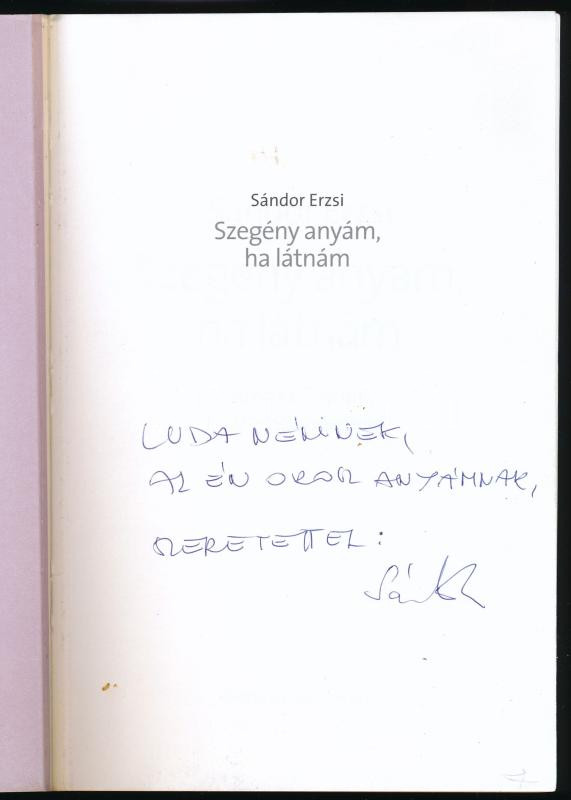 Sándor Erzsi
Szegény anyám,
ha látnám
LUDA NÉNINEK,
AZ ÉN OROSZ ANYÁMNAK,
SZERETETTEL: